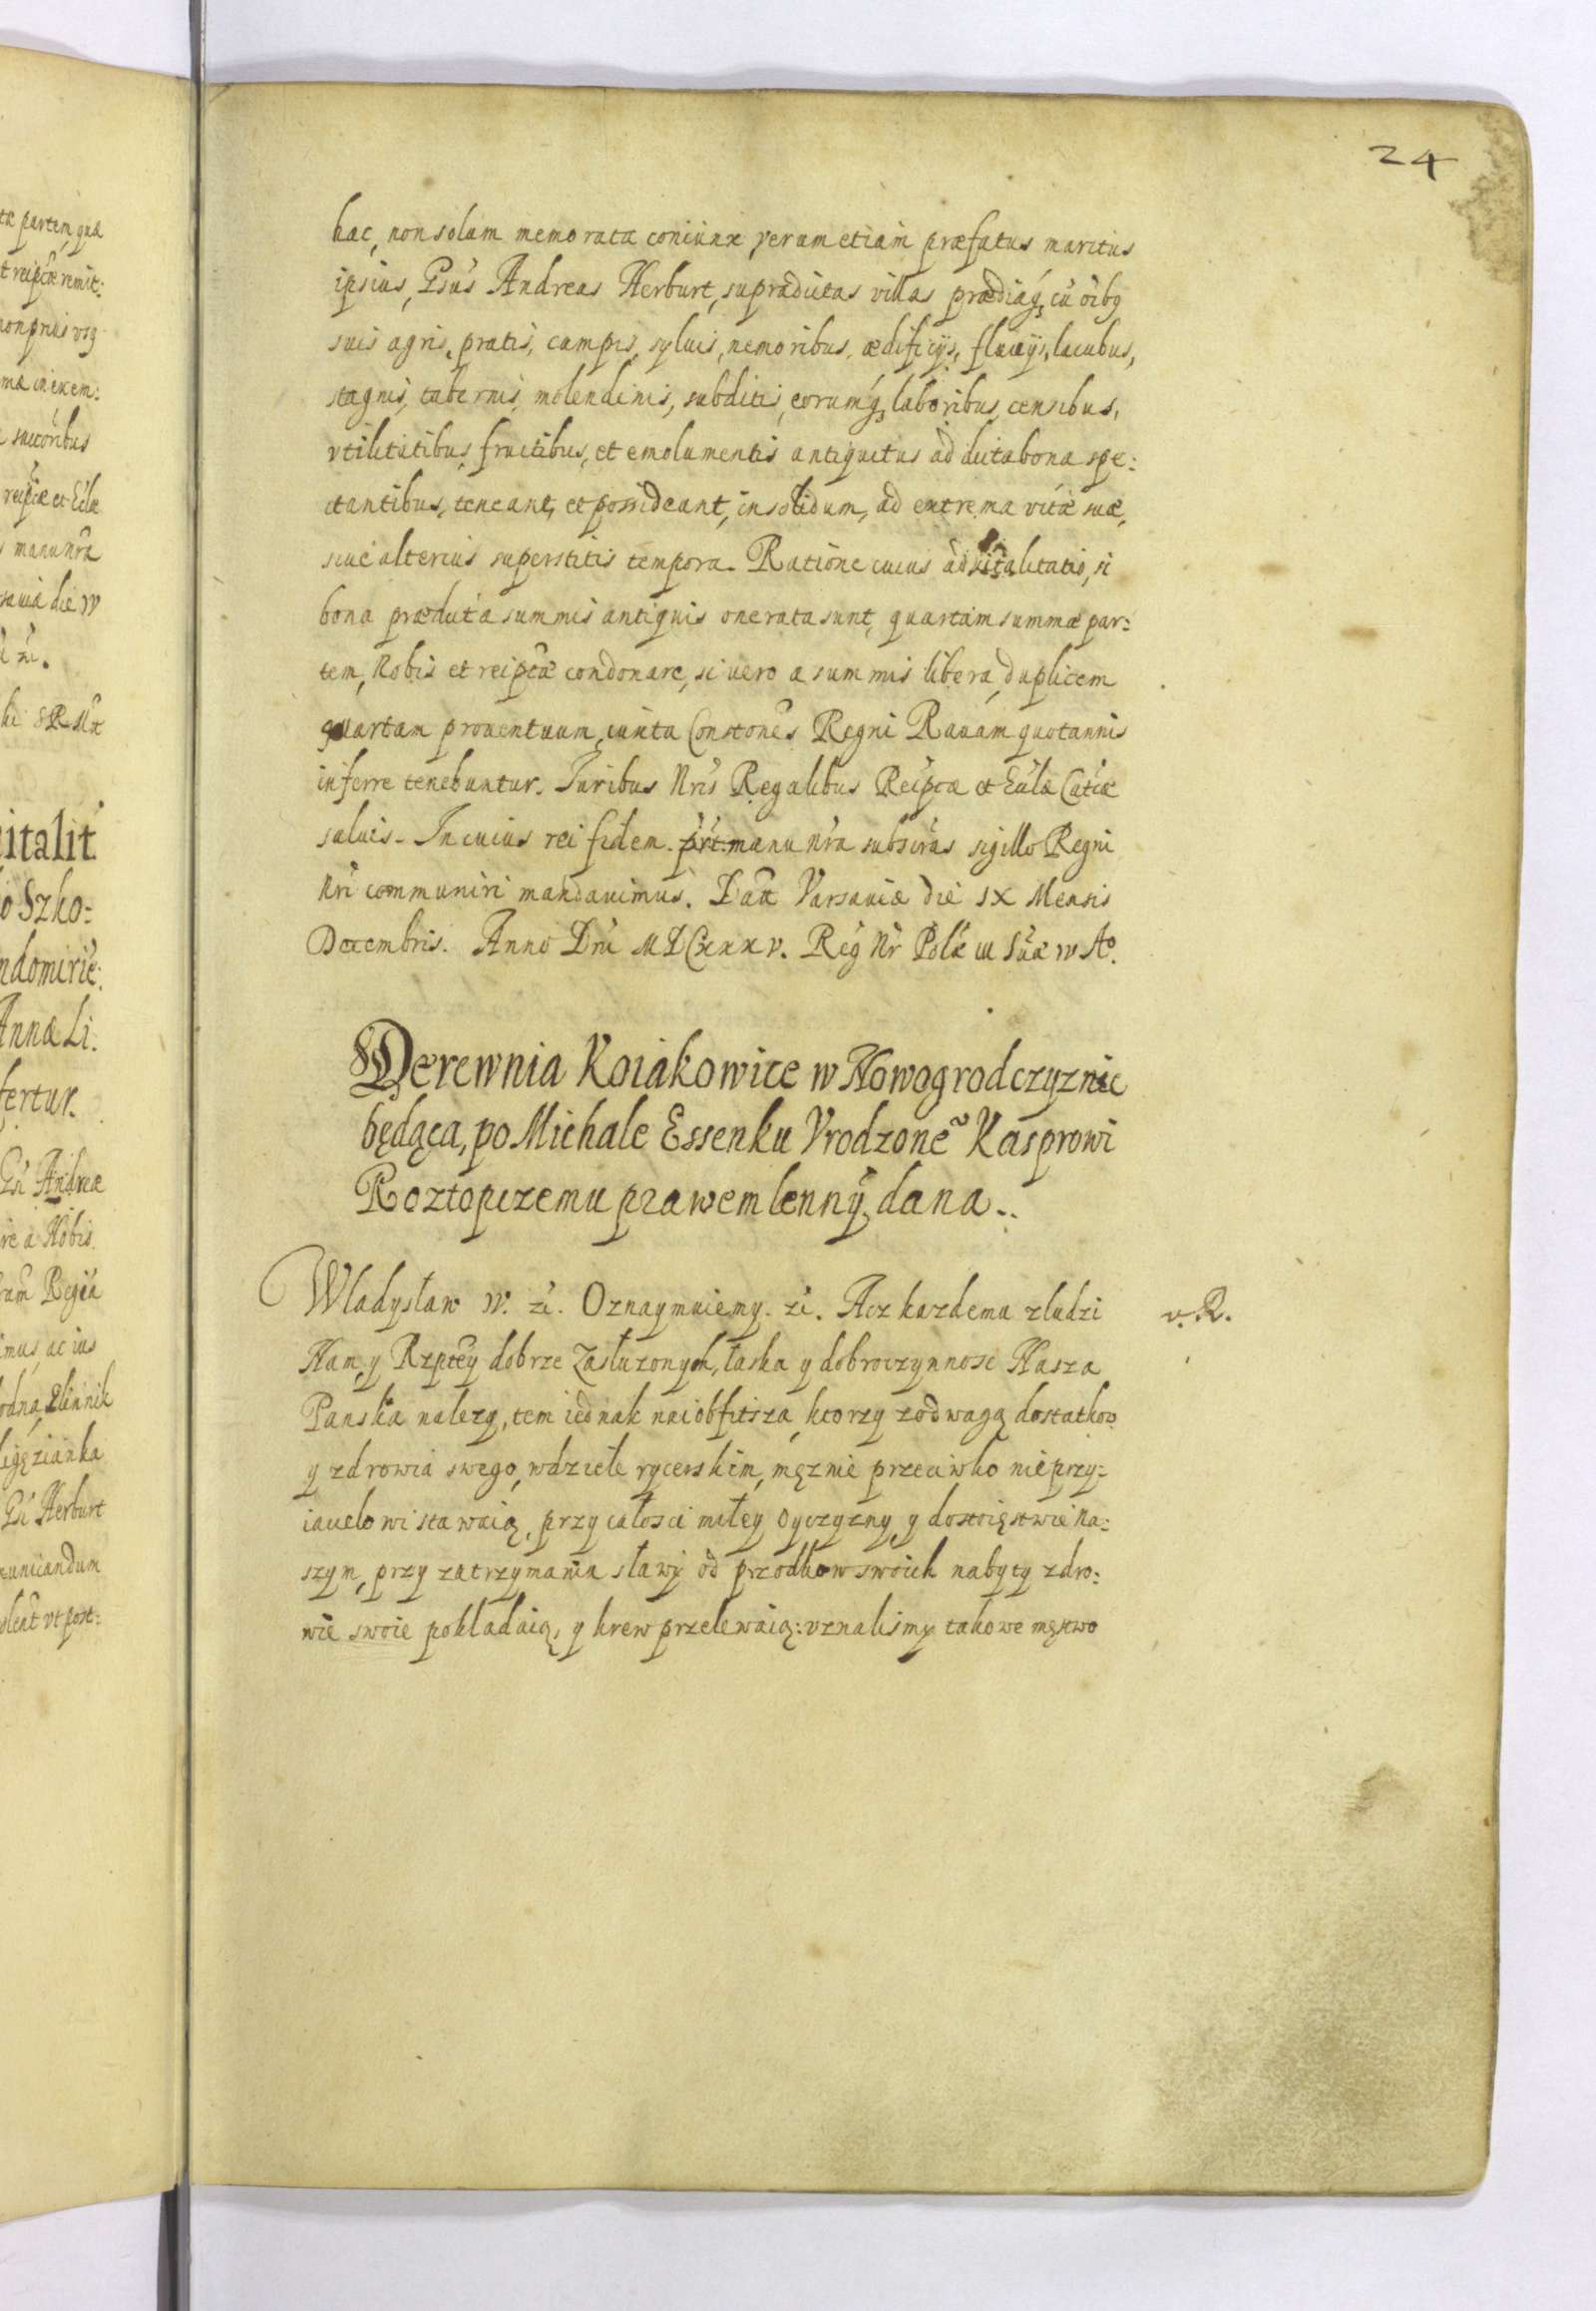 24
hac, non solum memorata coniunx, verum etiam præfatus maritus
ipsius, Gsus Andreas Herburt, supradictas villas prædiaq, cu oibq
suis agris, pratis, campis, syluis, nemoribus, ædificijs, fluuijs, lacubus,
stagnis, tabernis, molendinis, subditis, eorumq, laboribus, censibus,
vtilitatibus, fructibus, et emolumentis antiquitus ad dicta bona spe:
ctantibus, teneant, et possideant, in solidum, ad extrema vitæ suæ,
siue alterius superstitis tempora. Ratione cuius aduitalitatis, si
bona prædicta summis antiquis onerata sunt, quartam summæ par:
tem, Nobis et reipcæ condonare, si uero a summis libera, duplicem
quartam prouentuum, iuxta Constones Regni Rauam quotannis
inferre tenebuntur. Iuribus Nris Regalibus Reipcæ et Eccle Catcæ
saluis. In cuius rei fidem. prt. manu nra subscras sigillo Regni
Nri communiri mandauimus. Datt Varsauiæ die IX Mensis
Decembris. Anno Dni MDCxxxv. Reg Nr Polæ III Suæ IV Ao.
Derewnia Koiakowice w Nowogrodczyznie
będąca, po Michale Essenku Vrodzone Kasprowi
Roztopczemu prawem lenny dana..
Wladysław IV. zc. Oznaymuiemy. zc. Acz kazdemu z ludzi
v. R.
Nam y Rzptey dobrze zasłuzonych, łaska y dobroczynnosc Nasza
Panska nalezy, tem iednak naiobfitsza, ktorzy z odwagą dostatkow
y zdrowia swego, w dziele rycerskim, męznie przeciwko nieprzy:
iacielowi stawaią, przy całosci miłey Oyczyzny, y dostoięstwie Na:
szym, przy zatrzymaniu sławy od przodkow swoich nabyty zdro:
wie swoie pokladaią, y krew przelewaią: vznalismy takowe męstwo